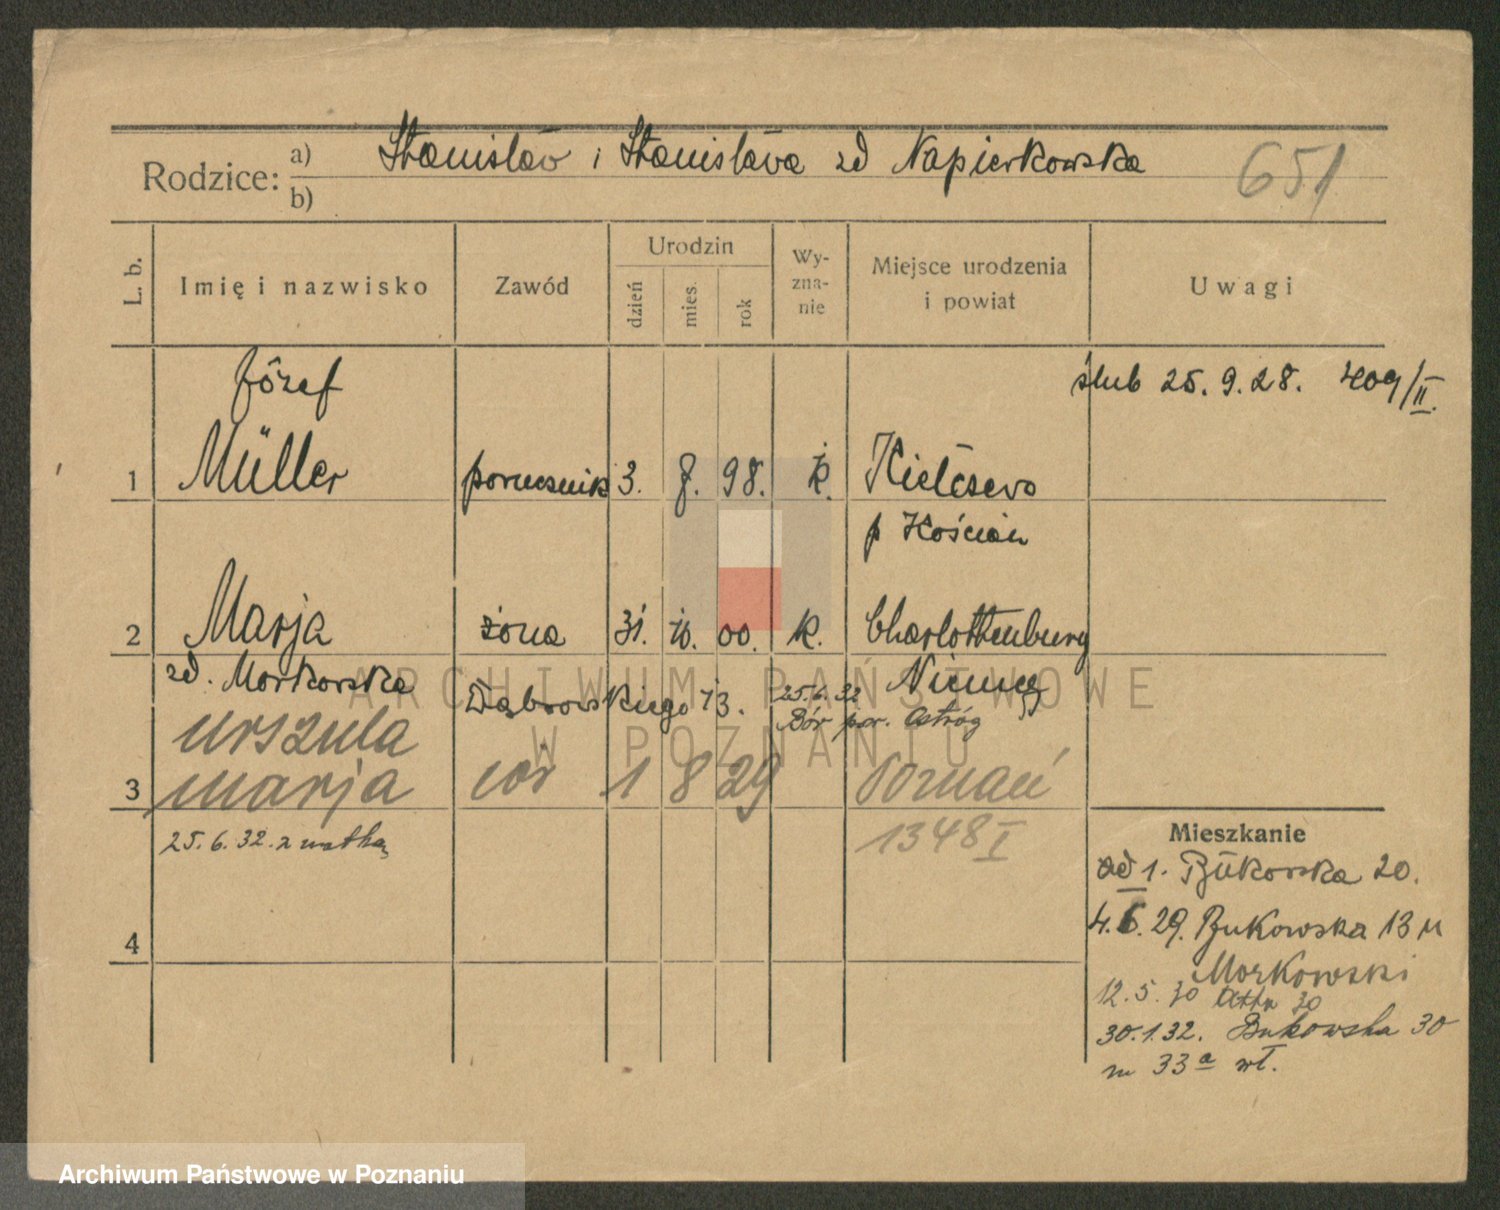 Rodzice: a) Stanisław i Stanisława zd Napierkowska 651
b)
L. b. Imię i nazwisko Zawód Urodzin Wy-zna-nie Miejsce urodzenia i powiat Uwagi
dzień mies. rok
Józef ślub 25. 9. 28. 409/II.
1 Müller porucznik 3. 8. 98. k. Kiełczewo
p Kościan
2 Marja żona 31. 10. 00. k. Charlottenburg
zd. Morkowska Dąbrowskiego 13. 25.6.32 Niemcy
Urszula Bór por. Ostróg
3 Marja cór 1 8 29 Poznań
25. 6. 32. z matką 1348 I
Mieszkanie
od 1. Bukowska 20.
4
4. 6. 29. Bukowska 13 u
Morkowski
12. 5. 30 30
30.1.32. Bukowska 30
m 33 a wł.
ARCHIWUM PAŃSTWOWE
W POZNANIU
Archiwum Państwowe w Poznaniu